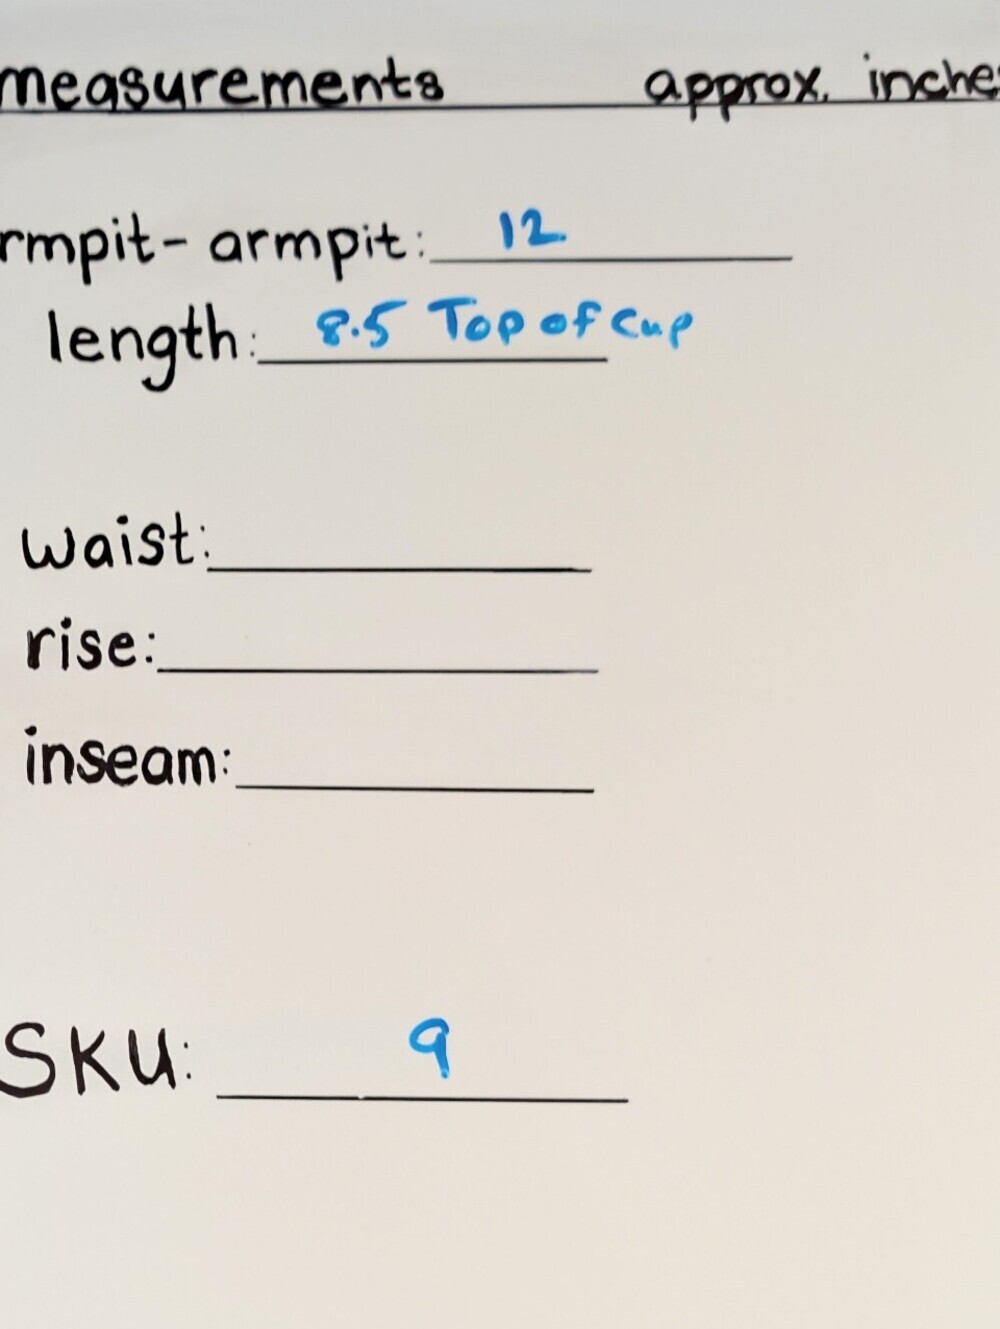 measurements approx. inche
rmpit - armpit: 12
length: 8.5 Top of Cup
waist:
rise:
inseam:
SKU: 9